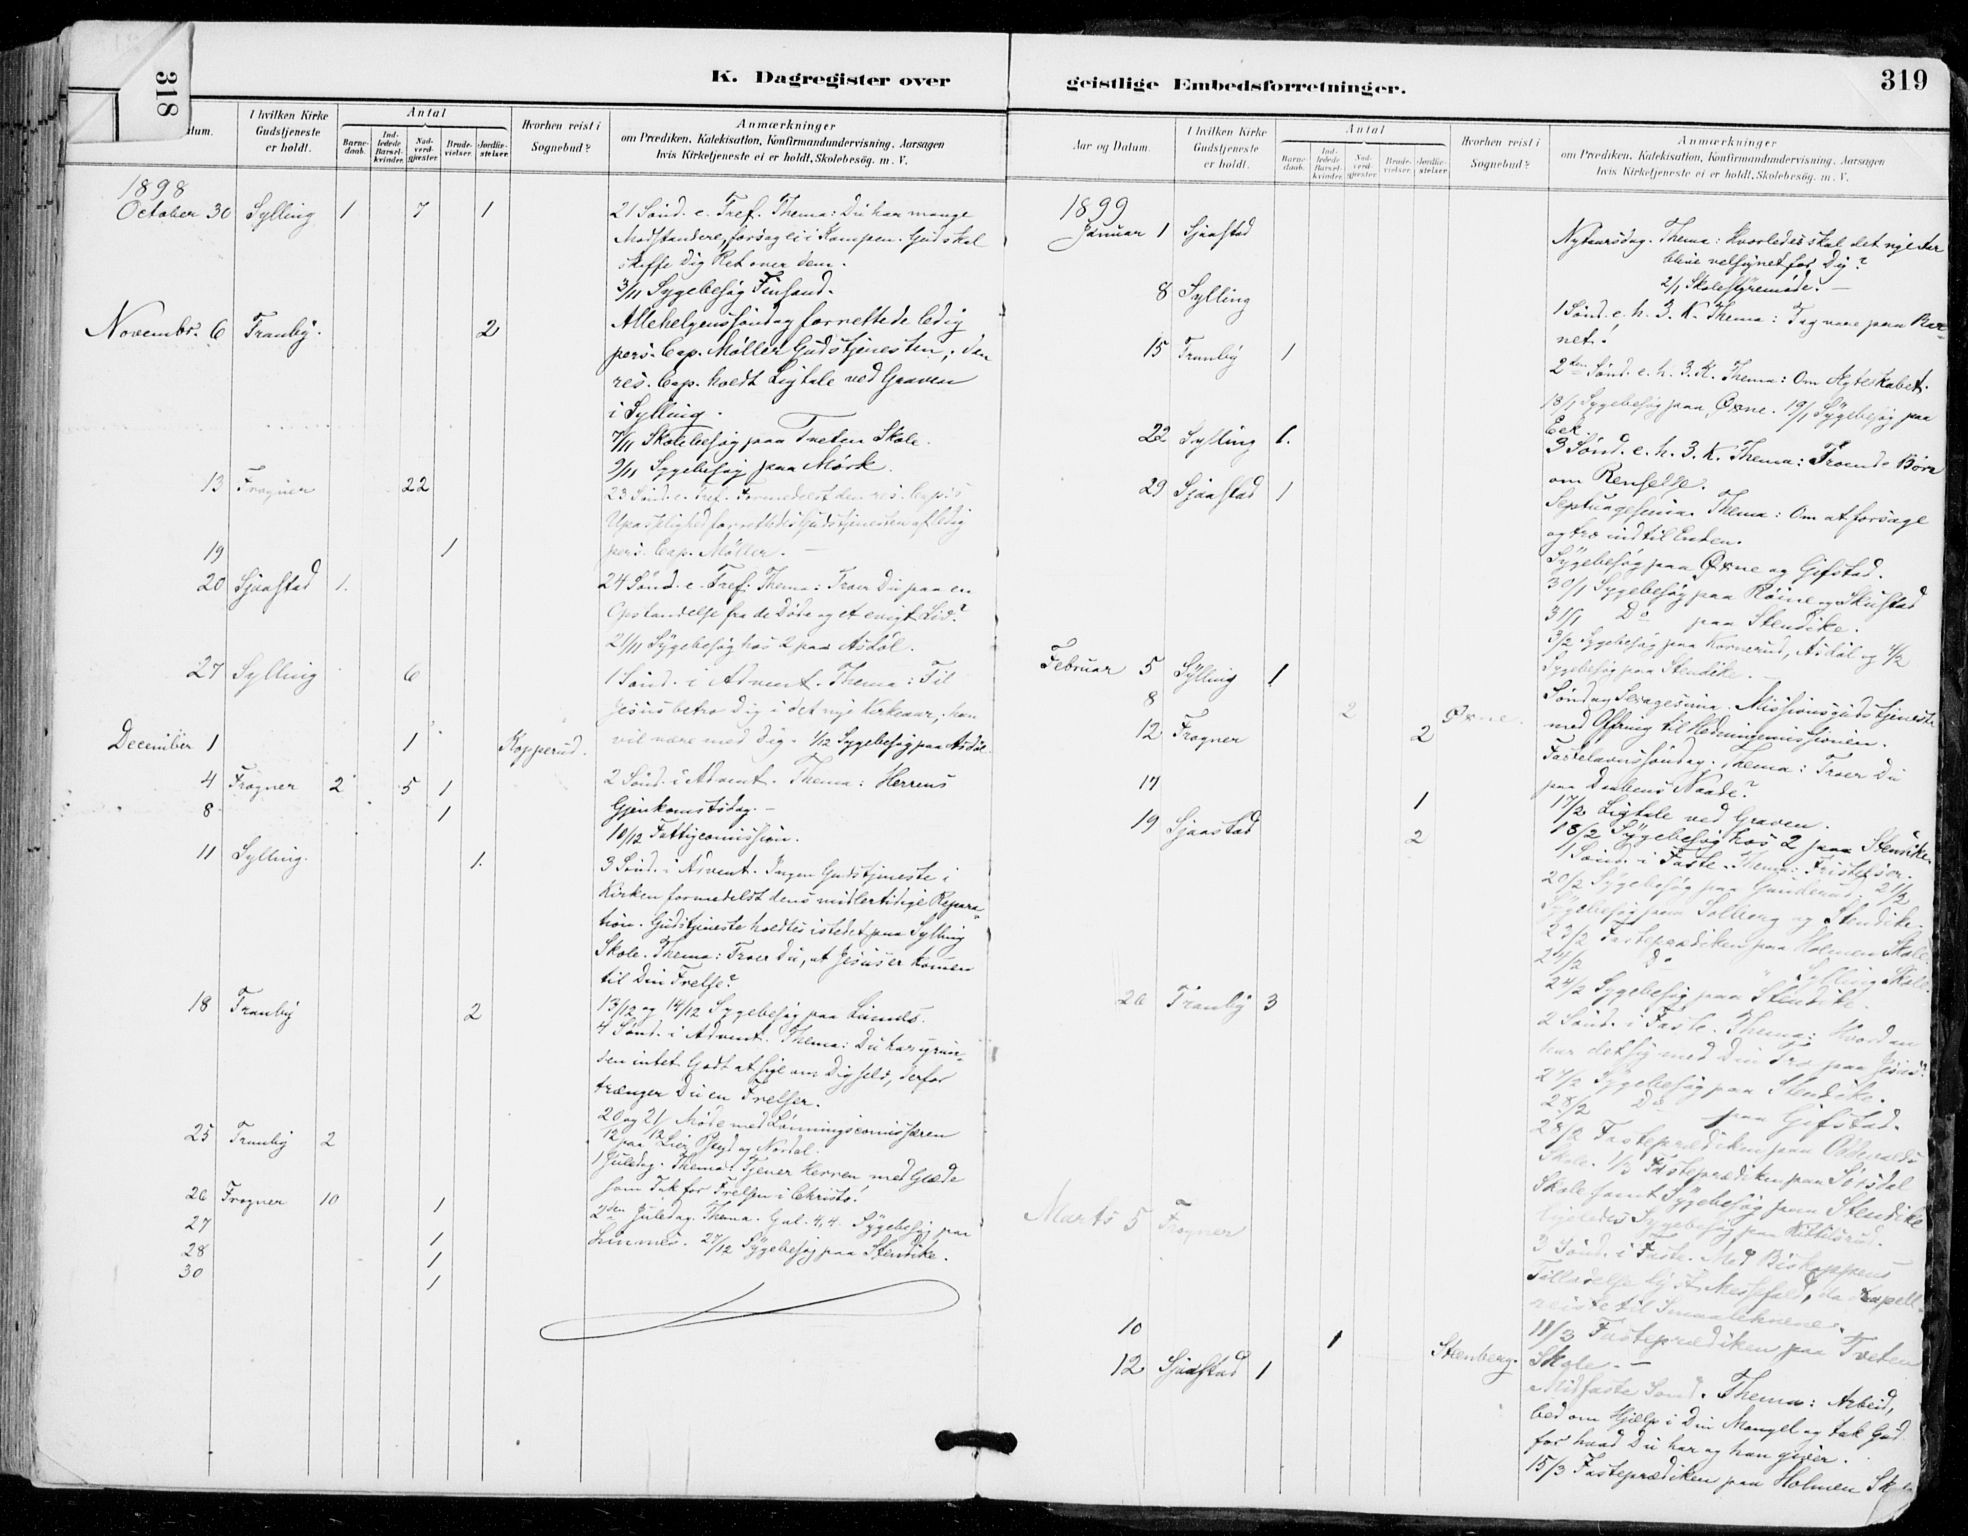 318
K. Dagregister over
Datum.
I hvilken Kirke Gudstjeneste er holdt.
Antal
Barne-daab.
Ind-ledede Barsel-kvinder.
Nad-verd-gjæster.
Brude-vielser.
Jordfæ-stelser.
Hvorhen reist i Sognebud?
Anmærkninger
om Prædiken, Katekisation, Konfirmandundervisning, Aarsagen
hvis Kirketjeneste ei er holdt, Skolebesøg, m. V.
1898
October 30 Sylling 1 7 1 21 Sønd. e. Tref. Thema: Du har mange
Modstandere, forsag ei i Kampen. Gud skal
skaffe dig Ret over dem.
3/11 Sygebesøg Finsand.
Novembr. 6 Tranby. 2 Allehelgenssøndag forrettede ledig
pers. Cap. Møller Gudstjenesten; den
res. Cap. holdt Ligtale ved Graven
i Sylling.
7/11 Skolebesøg paa Tveten Skole.
9/11 Sygebesøg paa Mørk.
13 Frogner 22 23 Sønd. e. Tref. Formedelst den res. Cap.s
Upasselighed forrettedes Gudstjenesten af ledig
pers. Cap. Møller. —
19 1
20 Sjaastad 1. 24 Sønd. e. Tref. Thema: Troer Du paa en
Opstandelse fra de Døde og et evigt Liv?
21/11 Sygebesøg hos 2 paa Asdøl.
27 Sylling 6 1 Sønd. i Advent. Thema: Til
Jesus betro Dig i det nye Kirkeaar, han
December 1 1 Kopperud. vil være med Dig. 1/12 Sygebesøg paa Asdøl
4 Frogner 2 5 1 2 Sønd. i Advent. Thema: Herrens
Gjenkomstsdag. —
8 1
10/12 Fattigcomission.
11 Sylling. 1. 3 Sønd. i Advent. Ingen Gudstjeneste i
Kirken formedelst dens midlertidige Repara-
tion. Gudstjeneste holdtes istedet paa Sylling
Skole. Thema: Troer Du, at Jesus er kommen
til Din Frelse?
13/12 og 14/12 Sygebesøg paa Linnes.
18 Tranby 2 4 Sønd. i Advent. Thema: Du har igrun-
den intet Godt at sige om Dig selv, derfor
trænger Du en Frelser.
20 og 21/12 Møde med Lønningscomissæren
paa Lier Bygd og Nordal.
25 Tranby 2 1 Juledag. Thema: Tjener Herren med Glæde
som Tak for Frelsen i Christo!
26 Frogner 10 1 2den Juledag. Thema. Gal. 4,4. Sygebesøg paa
Linnes. 27/12 Sygebesøg paa Stendike.
27 1
28 1
30 1
geistlige Embedsforretninger.
319
Aar og Datum.
I hvilken Kirke Gudstjeneste er holdt.
Antal
Barne-daab.
Ind-ledede Barsel-kvinder.
Nad-verd-gjæster.
Brude-vielser.
Jordfæ-stelser.
Hvorhen reist i Sognebud?
Anmærkninger
om Prædiken, Katekisation, Konfirmandundervisning, Aarsagen
hvis Kirketjeneste ei er holdt, Skolebesøg, m. V.
1899
Januar 1 Sjaastad Nytaarsdag. Thema: Hvorledes skal det nye Aar
blive velsignet for Dig?
2/1 Skolestyremøde. —
8 Sylling 1 Sønd. e. h. 3. K. Thema: Tag vare paa Bar-
net!
15 Tranby 1 2den Sønd. e. h. 3. K. Thema: Om Ægteskabet.
18/1 Sygebesøg paa Øxne. 19/1 Sygebesøg paa
Eek.
22 Sylling 1. 3 Sønd. e. h. 3. K. Thema: Troende Bøn
om Renselse.
29 Sjaastad 1 Septuagesima. Thema: Om at forsage
og tro indtil Enden.
Sygebesøg paa Øxne og Gifstad.
30/1 Sygebesøg paa Röine og Skustad
31/1 Do paa Stendike.
3/2 Sygebesøg paa Kornerud, Asdøl og 4/2
Sygebesøg paa Stendike. —
Februar 5 Sylling 1 Søndag Sexagesima. Missionsgudstjeneste
med Offring til Hedningemissionen.
8 2 Øxne.
12 Frogner 2 Fastelavnssøndag. Thema: Troer Du
paa Daabens Naade?
17 1 17/2 Ligtale ved Graven.
18/2 Sygebesøg hos 2 paa Stendike.
19 Sjaastad 2 1 Sønd. i Faste. Thema: Fristelser.
20/2 Sygebesøg paa Gunderud. 21/2
Sygebesøg paa Solberg og Stendike.
23/2 Fasteprædiken paa Holmen Skole.
24/2 Do " Sylling Skole.
24/2 Sygebesøg paa Stendike.
26 Tranby 3 2 Sønd. i Faste. Thema: Hvordan
har det sig med Din Tro paa Jesus?
27/2 Sygebesøg paa Stendike.
28/2 Do paa Gifstad.
28/2 Fasteprædiken paa
Skole. 1/3 Fasteprædiken paa Sørsdal
Skole samt Sygebesøg paa Stendike
ligeledes Sygebesøg paa Kittilsrud.
Marts 5 Frogner 3 Sønd. i Faste. Med Biskoppens
Tilladelse Messefald, da Kapell.
reiste til Smaalehnene.
10 1 Stenberg.
11/3 Fasteprædiken paa Tveten
Skole. —
12 Sjaastad 1 Midfaste Sønd. Thema: Arbeid,
bed om Hjælp i Din Mangel og tak Gud
for hvad Du har og han giver.
15/3 Fasteprædiken paa Holmen Sk